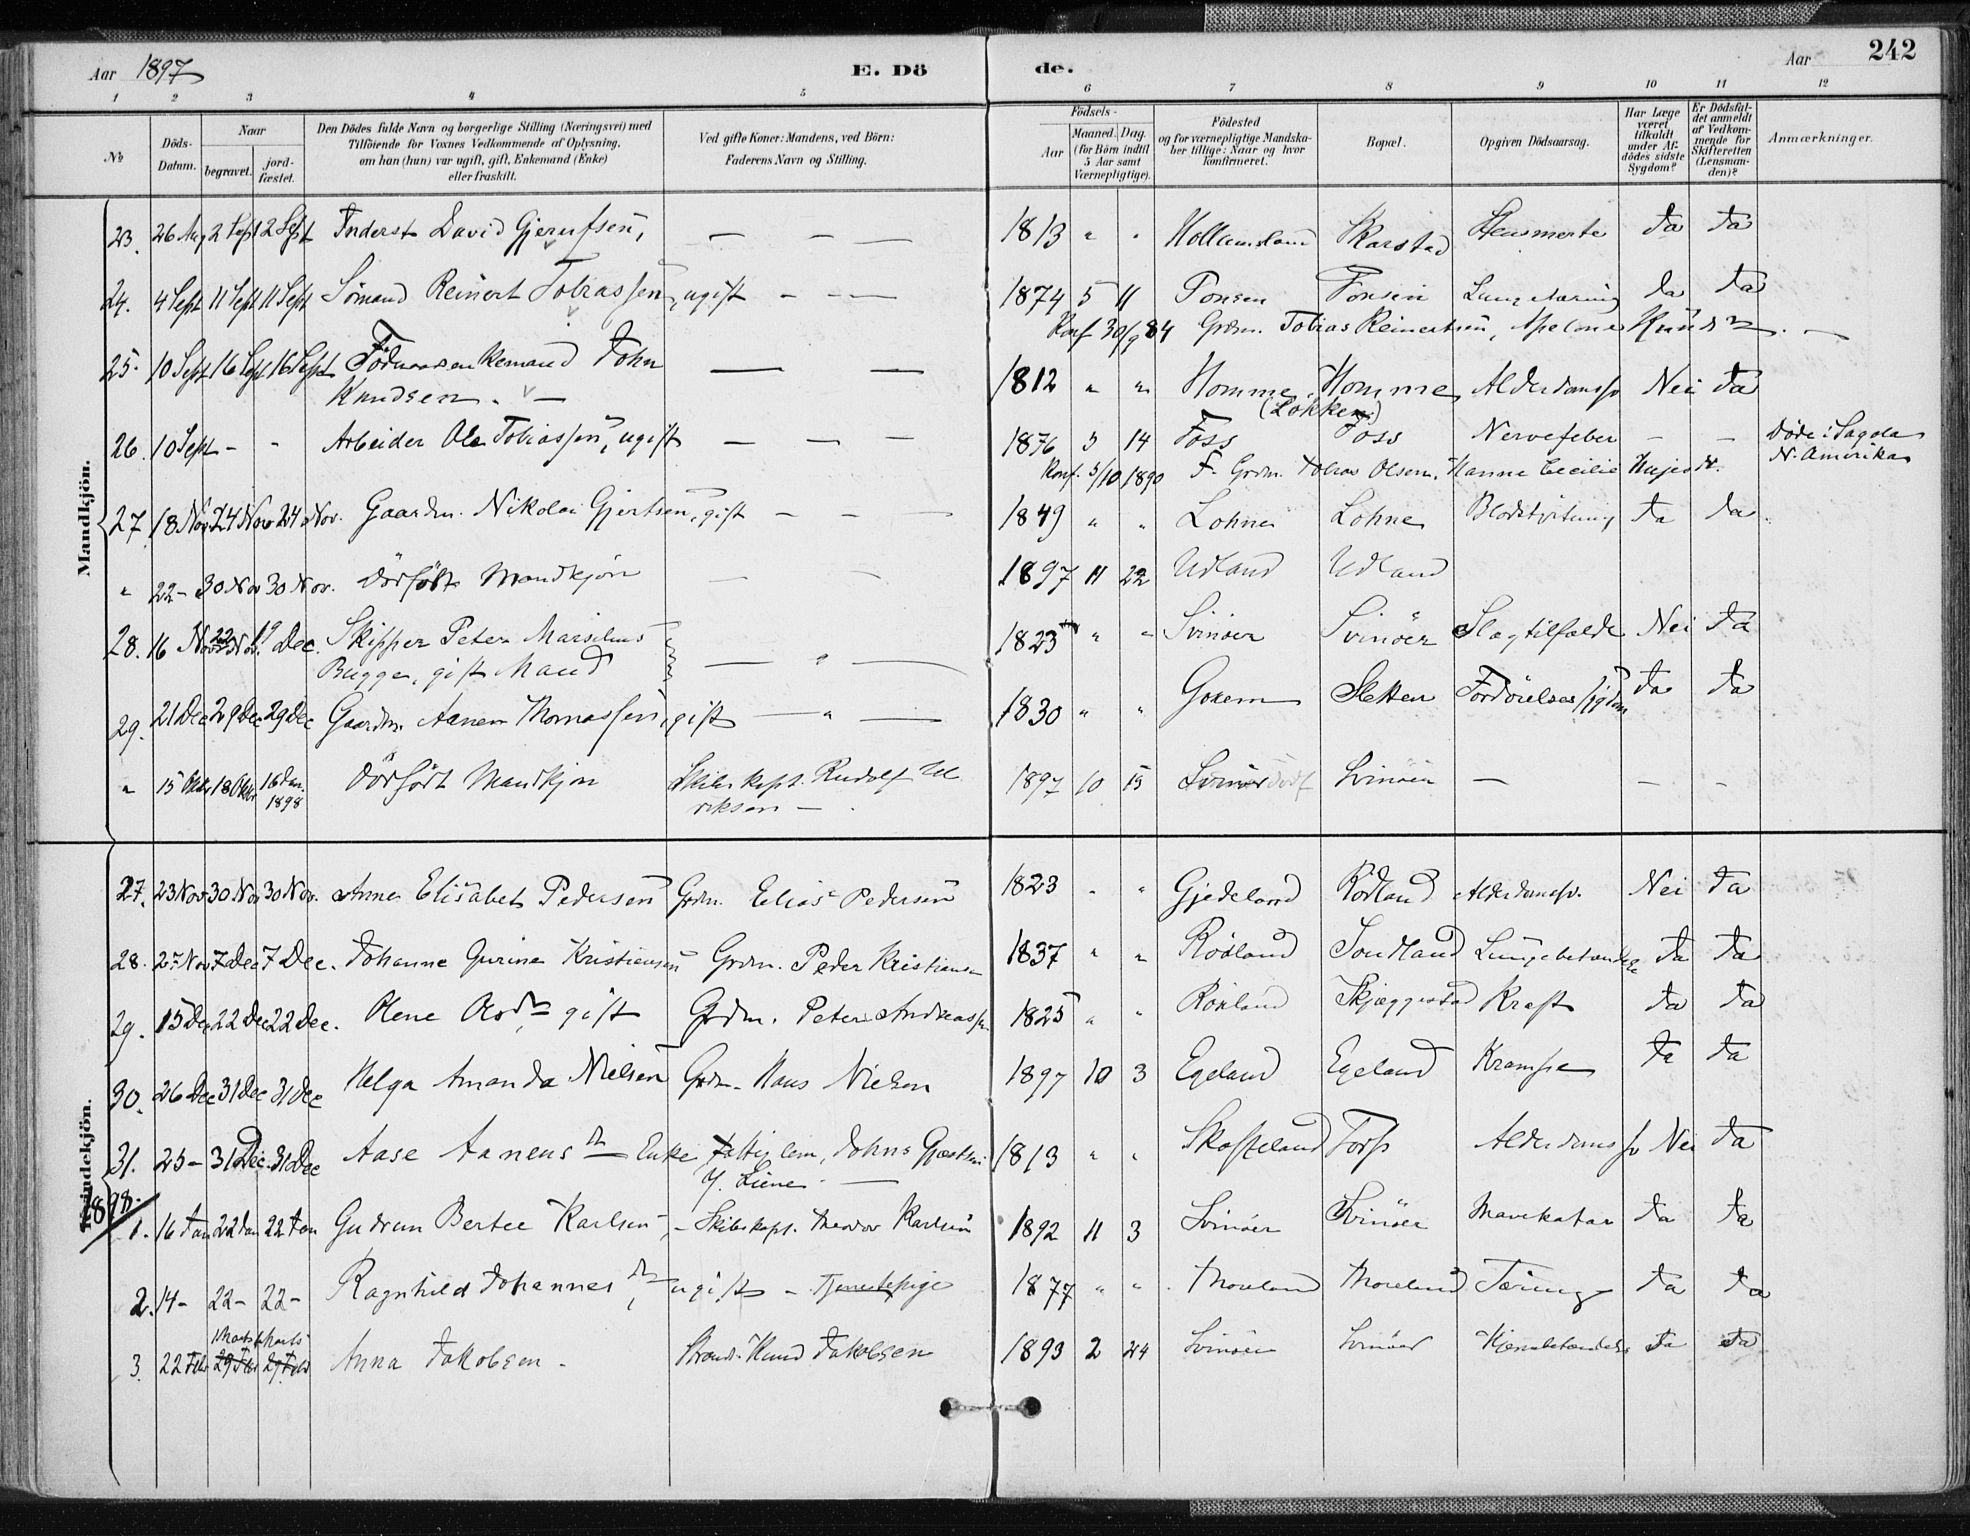 Aar 1897 E. Dö de. Aar 242
1 2 3 4 5 6 7 8 9 10 11 12
№ Döds-Datum. Naar begravet. jordfæstet. Den Dödes fulde Navn og borgerlige Stilling (Næringsvei) med Tilföiende for Voxnes Vedkommende af Oplysning, om han (hun) var ugift, gift, Enkemand (Enke) eller fraskilt. Ved gifte Koner: Mandens, ved Börn: Faderens Navn og Stilling. Födsels- Aar Maaned. Dag. (for Börn indtil 5 Aar samt Værnepligtige). Födested og for værnepligtige Mandskaber tillige: Naar og hvor konfirmeret. Bopæl. Opgiven Dödsaarsag. Har Læge været tilkaldt under Afdödes sidste Sygdom? Er Dödsfaldet anmeldt af Vedkommende for Skifteretten (Lensmanden)? Anmærkninger.
Mandkjön.
23. 26 Aug 2 Sept 2 Sept Inderst David Gjerulfsen, — — — 1813 " " Skarstad Ja Ja
24. 4 Sept 11 Sept 11 Sept Sömand Reinert Tobiassen, ugift — — — 1874 5 11 Ja Ja
Konf 30/9 84 Grdm. Tobias Reinertsen,
25. 10 Sept 16 Sept 16 Sept John — — 1812 " " Homme Homme Alderdomssv Nei Ja
Knudsen. — (Lökken)
26. 10 Sept - - Arbeider Ole Tobiassen, ugift — — — 1876 5 14 Foss Foss Nervefeber — — Döde i
N. Amerika
Konf. 5/10 1890 F. Grdm. Tobias Olsen, Hanne Cecilie
27. 18 Nov 24 Nov 24 Nov. Gaardm. Nikolai Gjertsen, gift — — — 1849 " " Lohne Lohne Ja Ja
" 22 - 30 Nov 30 Nov. Dödfödt Mandkjön — — 1897 11 22 Udland Udland
28. 16 Nov 22 Nov. 19 Dec. Skipper Peter Marselius 1823 " " Svinöer Svinöer Slagtilfælde Nei Ja
Bugge, gift Mand — " —
29. 21 Dec 29 Dec 29 Dec Gaardm. Aanen Thomassen, gift — " — 1830 " " Sletten Fordöielsessygdom Ja Ja
" 15 Oktbr 18 Oktbr 16 Jan. 1898 Dödfödt Mandkjön Skibskapt. Rudolf Ul
riksen — 1897 10 15 Svinöer — — —
Kvindekjön.
27. 23 Nov 30 Nov 30 Nov. Anne Elisabet Pedersen Grdm. Elias Pedersen 1823 " " Gjedeland Rödland Alderdomssv. Nei Ja
28. 27 Nov 7 Dec 7 Dec. Johanne Gurine Kristiansen Grdm. Peder Kristiansen 1837 " " Rödland Sondland Lungebetændelse Ja Ja
29. 15 Dec 22 Dec 22 Dec. gift Grdm. Peter Andreassen 1825 " " Skjæggestad Kræft Ja Ja
30. 26 Dec 31 Dec 31 Dec Helga Amanda Nielsen Grdm. Hans Nielsen 1897 10 3 Egeland Egeland Krampe Ja Ja
31. 25 - 31 Dec. 31 Dec Aase Aanens dr Enke Fattiglem, Johns 1813 " " Alderdomssv Nei Ja
1898.
1. 16 Jan 22 Jan 22 Jan Gudrun Bertee Karlsen, - Skibskapt. Theodor Karlsen 1892 11 3 Svinöer Svinöer Mavekatar Ja Ja
2. 14 - 22 - 22 - Ragnhild Johannes dr, ugift - Tjenestepige 1877 " " Tæring Ja Ja
1 Marts 1 Marts
3. 22 Feb 29 Feb 29 Feb Anna Jakobsen. Strands. Knud Jakobsen 1893 2 24 Svinöer Svinöer Hjernebetændelse Ja Ja